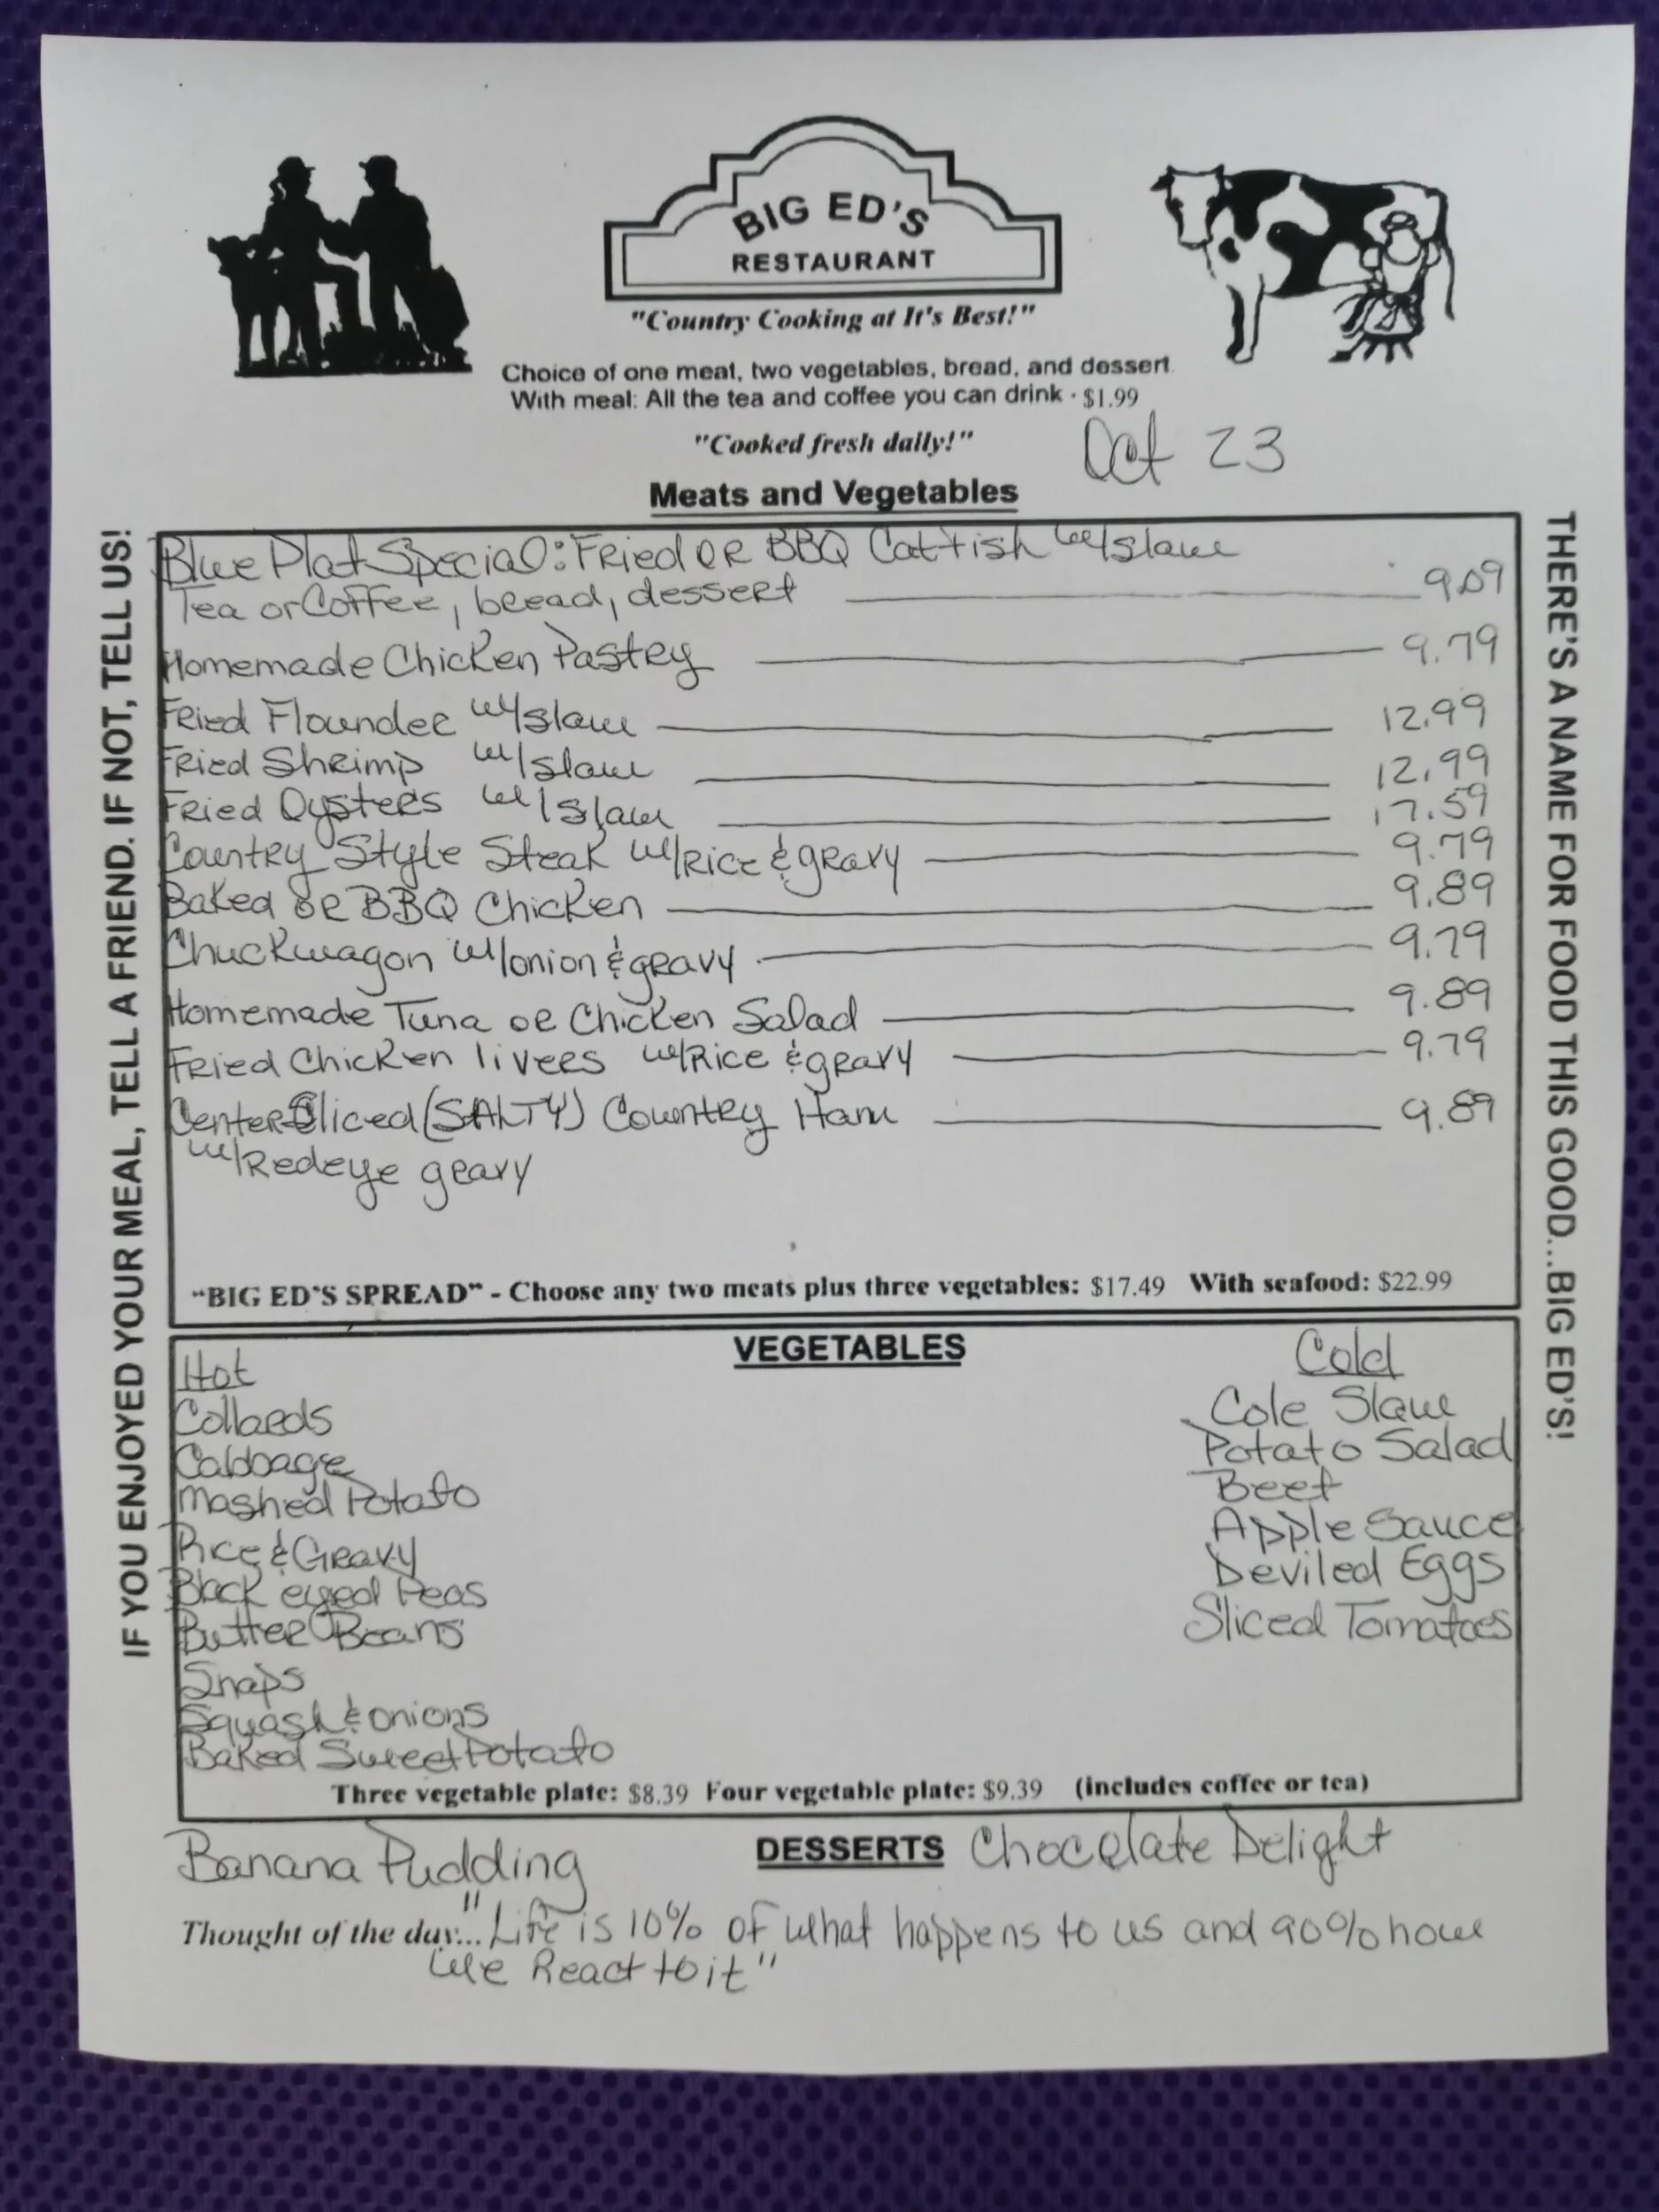 BIG ED'S
RESTAURANT
"Country Cooking at It's Best!"
Choice of one meat, two vegetables, bread, and dessert.
With meal: All the tea and coffee you can drink · $1.99
"Cooked fresh daily!"
Oct 23
Meats and Vegetables
IF YOU ENJOYED YOUR MEAL, TELL A FRIEND. IF NOT, TELL US!
Blue Plat Special: Fried or BBQ Catfish w/slaw
Tea or Coffee, bread, dessert 9.09
Homemade Chicken Pastry 9.79
Fried Flounder w/slaw 12.99
Fried Shrimp w/slaw 12.99
Fried Oysters w/slaw 17.59
Country Style Steak w/Rice & gravy 9.79
Baked or BBQ Chicken 9.89
Chuckwagon w/onion & gravy 9.79
Homemade Tuna or Chicken Salad 9.89
Fried Chicken livers w/Rice & gravy 9.79
Center Sliced (SALTY) Country Ham 9.89
w/Redeye gravy
"BIG ED'S SPREAD" - Choose any two meats plus three vegetables: $17.49 With seafood: $22.99
THERE'S A NAME FOR FOOD THIS GOOD...BIG ED'S!
VEGETABLES
Hot
Collards
Cabbage
Mashed Potato
Rice & Gravy
Black eyed Peas
Butter Beans
Snaps
Squash & onions
Baked Sweet Potato
Cold
Cole Slaw
Potato Salad
Beet
Apple Sauce
Deviled Eggs
Sliced Tomatoes
Three vegetable plate: $8.39 Four vegetable plate: $9.39 (includes coffee or tea)
Banana Pudding DESSERTS Chocolate Delight
Thought of the day... "Life is 10% of what happens to us and 90% how
we React to it"